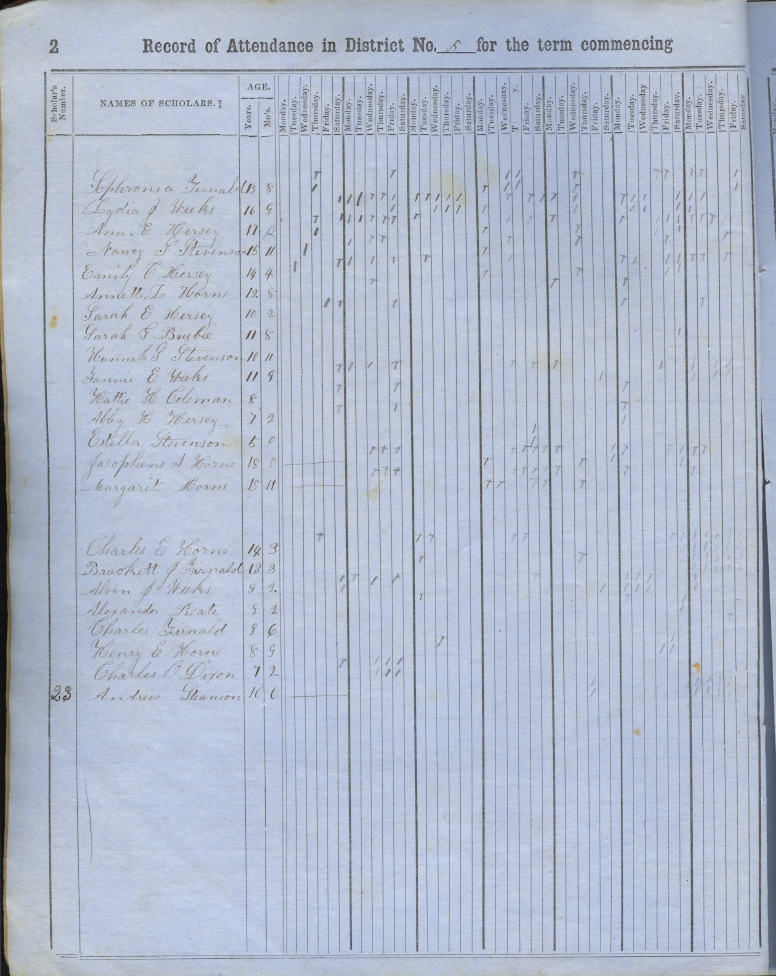 2 Record of Attendance in District No. 5 for the term commencing
Scholar's Number.
NAMES OF SCHOLARS.
AGE.
Years. Mo's.
Monday. Tuesday. Wednesday. Thursday. Friday. Saturday. Monday. Tuesday. Wednesday. Thursday. Friday. Saturday. Monday. Tuesday. Wednesday. Thursday. Friday. Saturday. Monday. Tuesday. Wednesday. T y. Friday. Saturday. Monday. Tuesday. Wednesday. Thursday. Friday. Saturday. Monday. Tuesday. Wednesday. Thursday. Friday. Saturday. Monday. Tuesday. Wednesday. Thursday. Friday. Saturday.
Sophronia Furnald 15 8
Lydia J Weeks 16 9
Ann. E Hersey 17 2
Nancy S Stevenson 15 11
Emily C Hersey 14 4
Annette L Horne 12 8
Sarah E Hersey 10 2
Sarah F 11 8
Hannah S Stevenson 10 11
Fannie E Weeks 11 9
Hattie H Coleman 8
Abby H Hersey 7 2
Estella Stevenson 5 0
Horne 18 0
Margarit Horne 15 11
Charles E Horne 14 3
Brackett J Furnald 13 3
Alvin J Weeks 9 2
Alexander 9 2
Charles Furnald 9 6
Henry E Horne 8 9
Charles O Dixon 7 2
23 Andrew 16 6